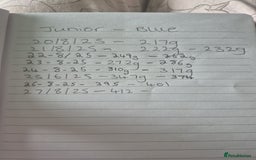 Junior - Blue
20/8/25 - 217g
21/8/25 - 222g - 232g
22-8/25 - 249g - 262g
23-8-25 - 272g - 286g
24-8-25 - 310g - 317g
25/8/25 - 347g - 374
26-8-25 - 395 - 401
27/8/25 - 412 -